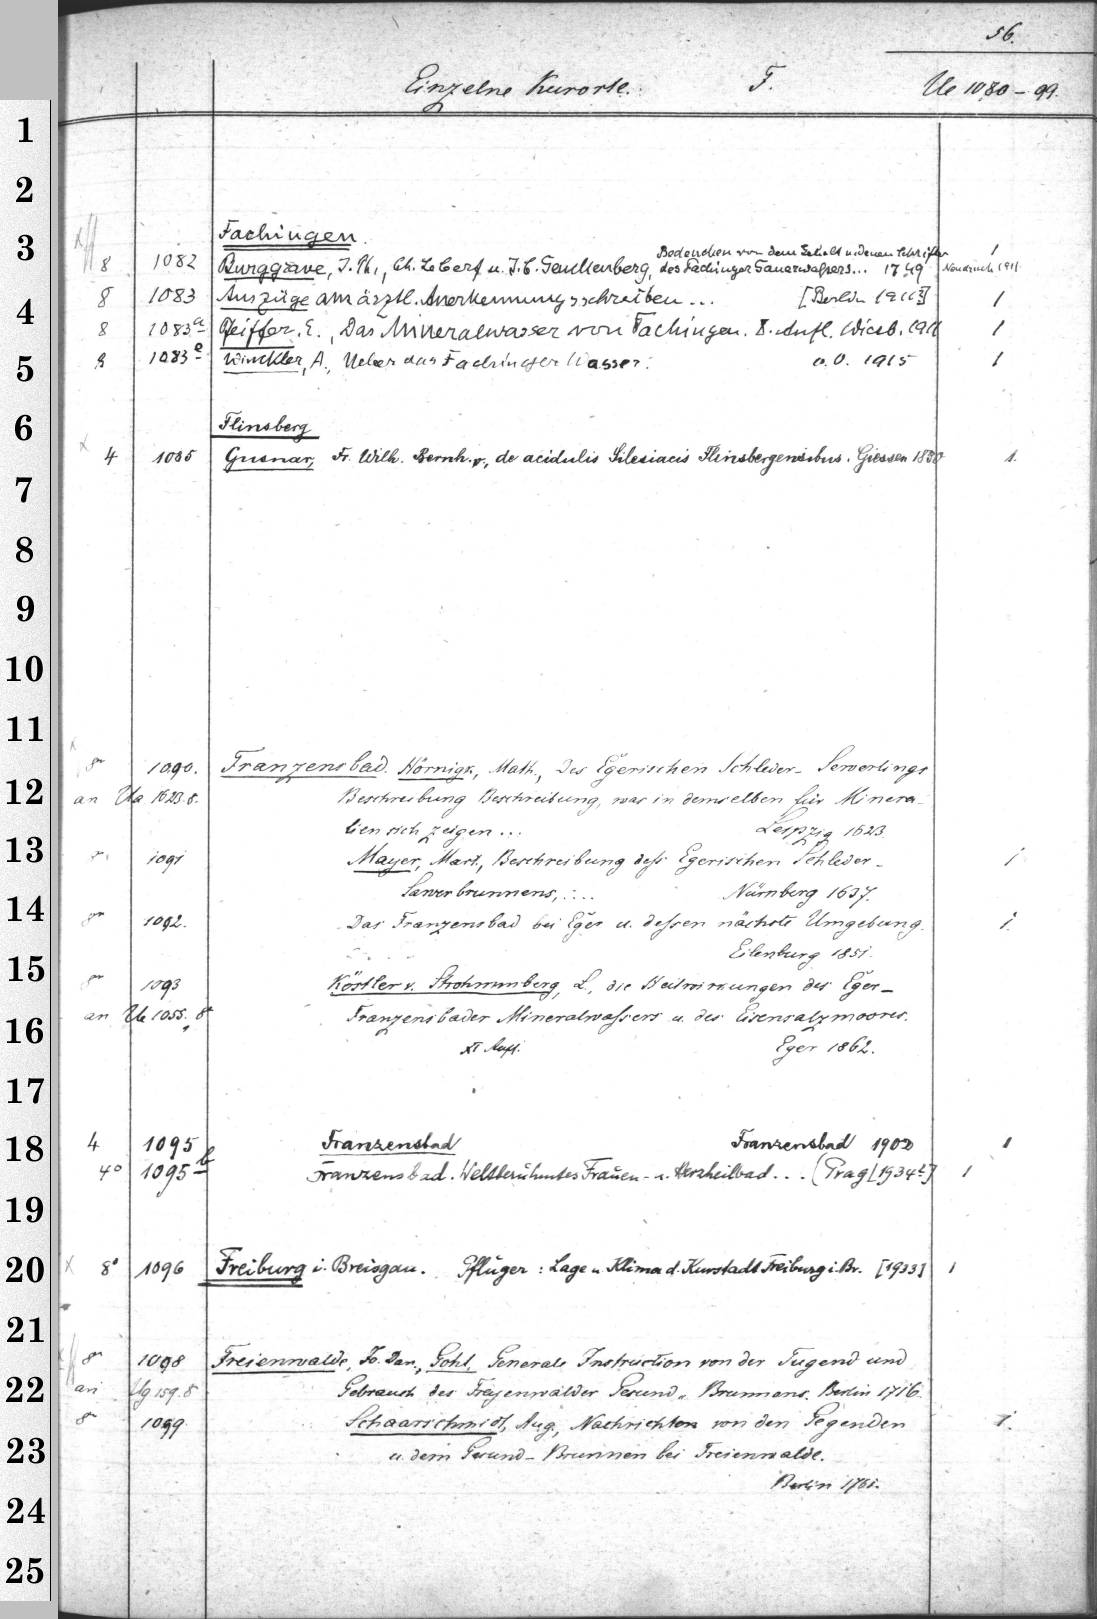 56.
Einzelne Kurorte. F. Ue 1080-99.
1
2
3
Fachingen.
dem u. denen Schriften 1
8 1082 Burggrave, J. Ph., u. J. C. des Fachinger Sauerwassers... 1749 Neudruck 1911
8 1083 Auszüge am ärztl. Anerkennungsschreiben... [Berlin 1911?] 1
4
8 1083a Pfeiffer, E., Das Mineralwasser von Fachingen. Aufl. Wiesb. 1911 1
8 1083e Winckler, A., Ueber das Fachinger Wasser. o. O. 1915 1
5
6
Flinsberg
4 1085 Fr. Wilh. Bernh. v., de acidulis Silesiacis Flinsbergensibus. Giessen 1
7
8
9
10
11
8° 1090. Franzensbad. Hörnigk, Math., Des Egerischen Schleder- Seuerlings
12
an Ua 1623. 8. Beschreibung Beschreibung, was in demselben für Minera-
lien sich zeigen... Leipzig 1623
13
1091 Mayer, Mart., Beschreibung deß Egerischen Schleder- 1
Sawerbrunnens, ... Nürnberg 1637.
14
8° 1092. Das Franzensbad bei Eger u. dessen nächste Umgebung. 1.
Eilenburg 1851.
15
8° 1093 Köstler v. Strohmmberg, L., die Heilwirkungen des Eger-
16
an Ue 1055, 8° Franzensbader Mineralwassers u. des Eisensalzmoores.
XI Aufl. Eger 1862.
17
18
4 1095 Franzensbad Franzensbad 1902 1
4° 1095b Franzensbad. Weltberühmtes Frauen- u. Herzheilbad... (Prag [1934?] 1
19
20
x 8° 1096 Freiburg i. Breisgau. Pflüger: Lage u. Klima d. Kurstadt Freiburg i. Br. [1933] 1
21
8° 1098 Freienwalde, Jo. Dan., Gohl, Generale Instruction von der Tugend und
22
an Ug 159. 8 Gebrauch des Freyenwalder Gesund-Brunnens. Berlin 1716.
8° 1099 Schaarschmidt, Aug., Nachrichten von den Gegenden 1.
23
u. dem Gesund-Brunnen bei Freienwalde.
Berlin 1761.
24
25